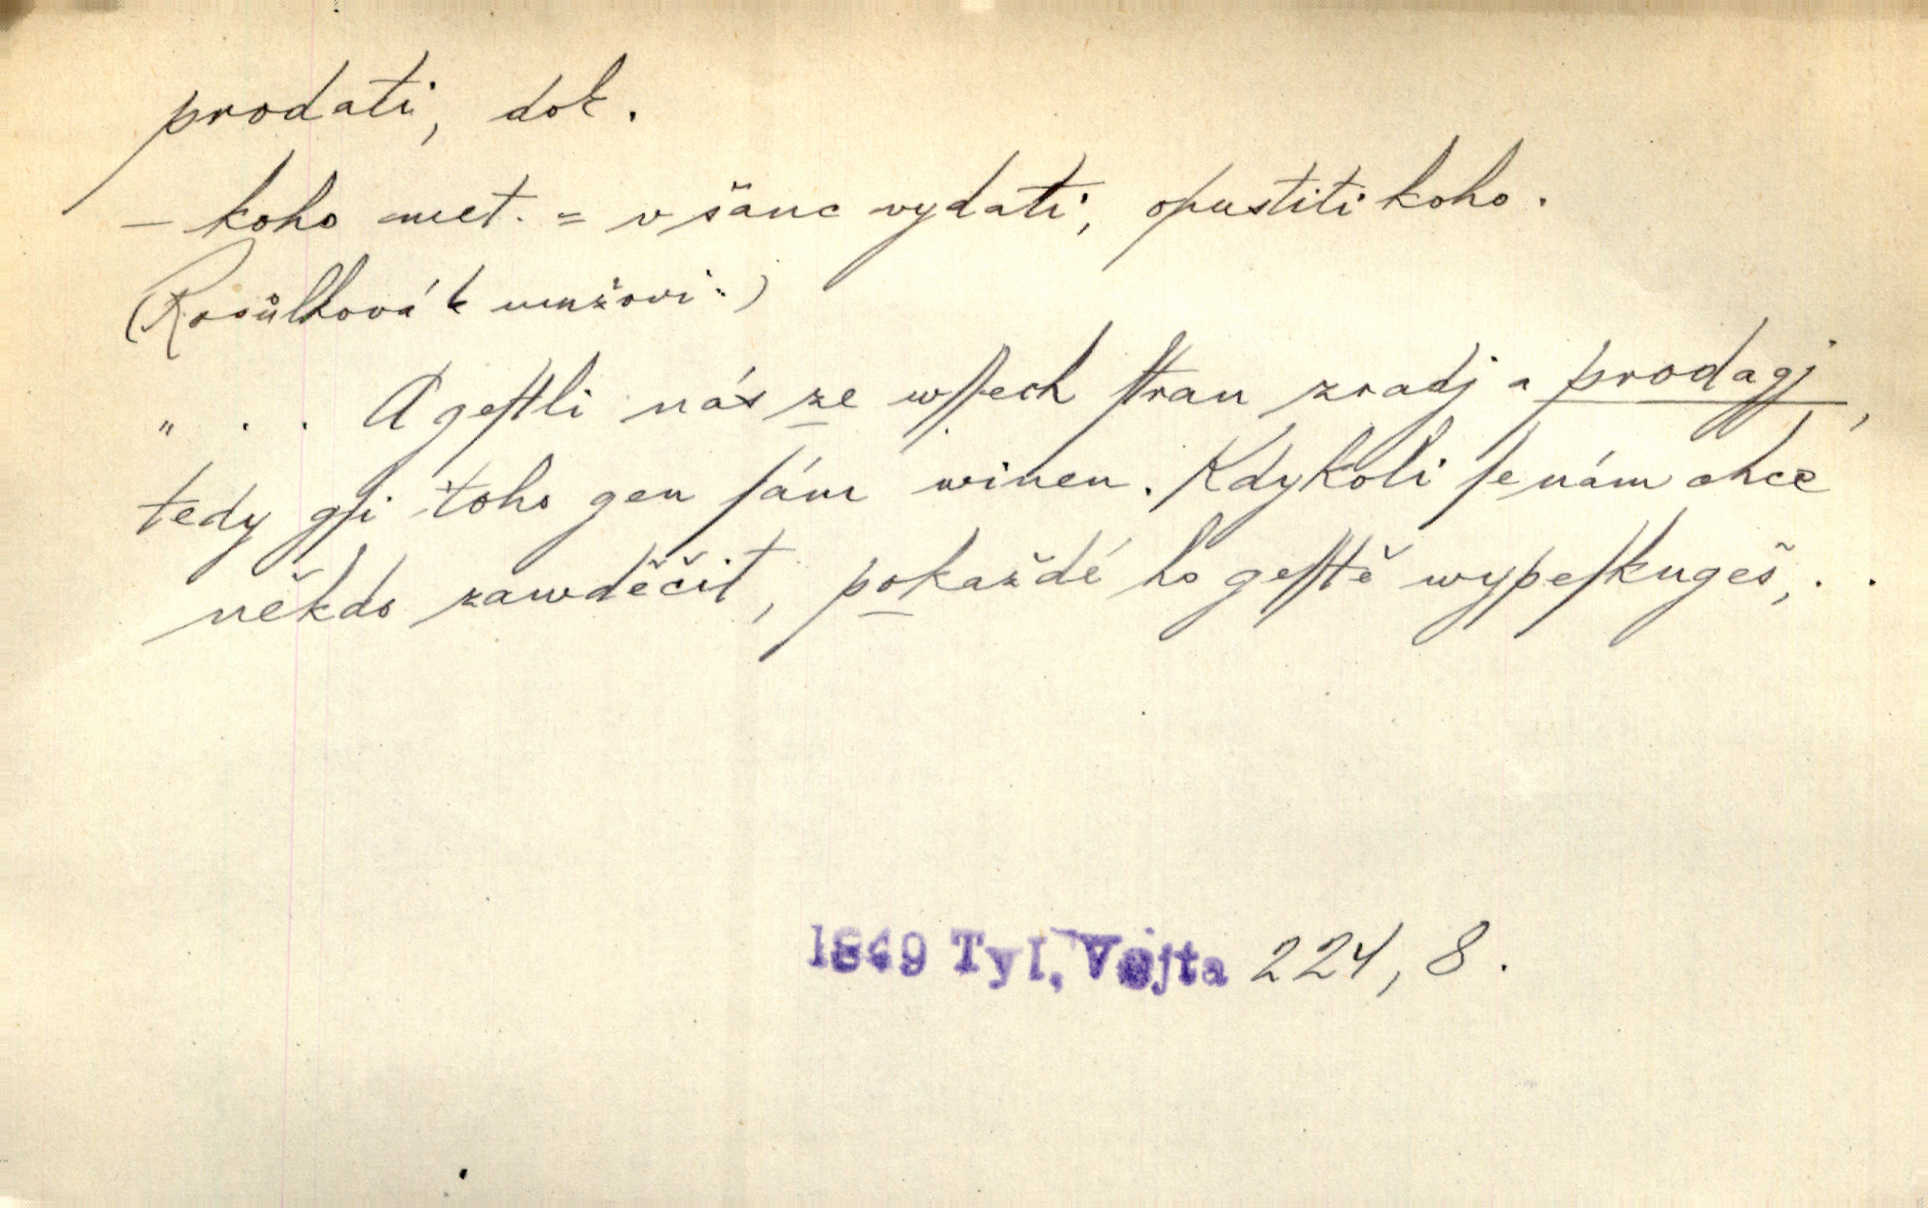 prodati, dok.
– koho met. = v šanc vydati, opustiti koho.
(Rosůlková k mužovi:)
„ . . A geſtli nás ze wſſech ſtran zradj a prodagj,
tedy gſi toho gen ſám winen. Kdykoli ſe nám chce
někdo zawděčit, pokaždé ho geſſtě wypeſkugeš, . .
1849 Tyl, Vojta 224, 8.